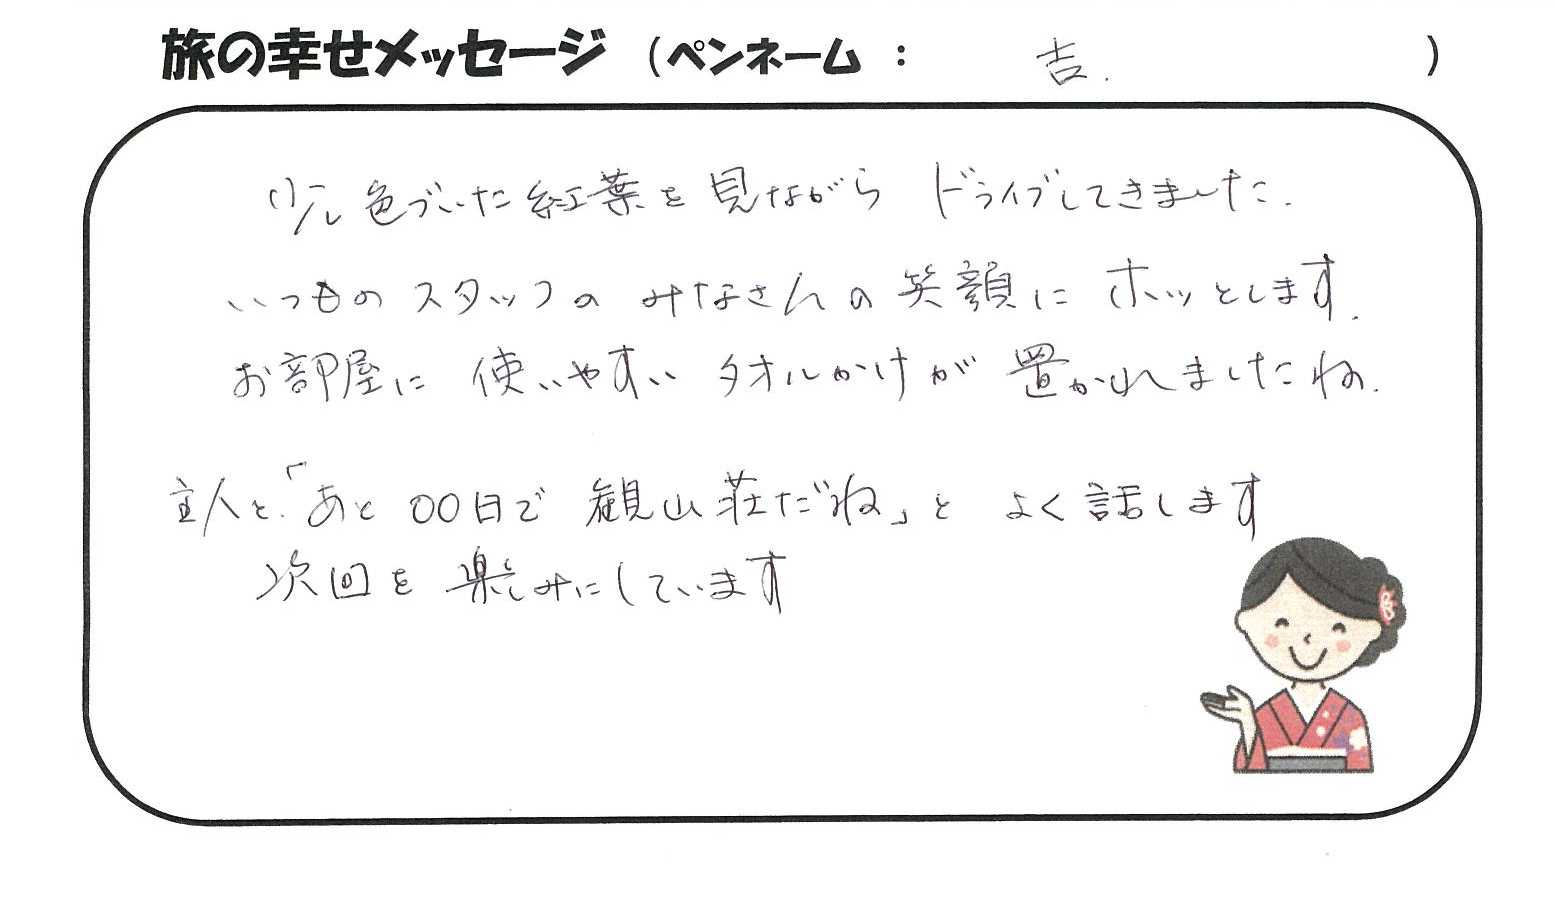 旅の幸せメッセージ (ペンネーム : 吉. )
少し色づいた紅葉を見ながら ドライブしてきました.
いつもの スタッフの みなさんの 笑顔に ホッとします.
お部屋に 使いやすい タオルかけが 置かれましたね.
主人と「あと 〇〇日で 観山荘だね」と よく話します
次回を楽しみにしています